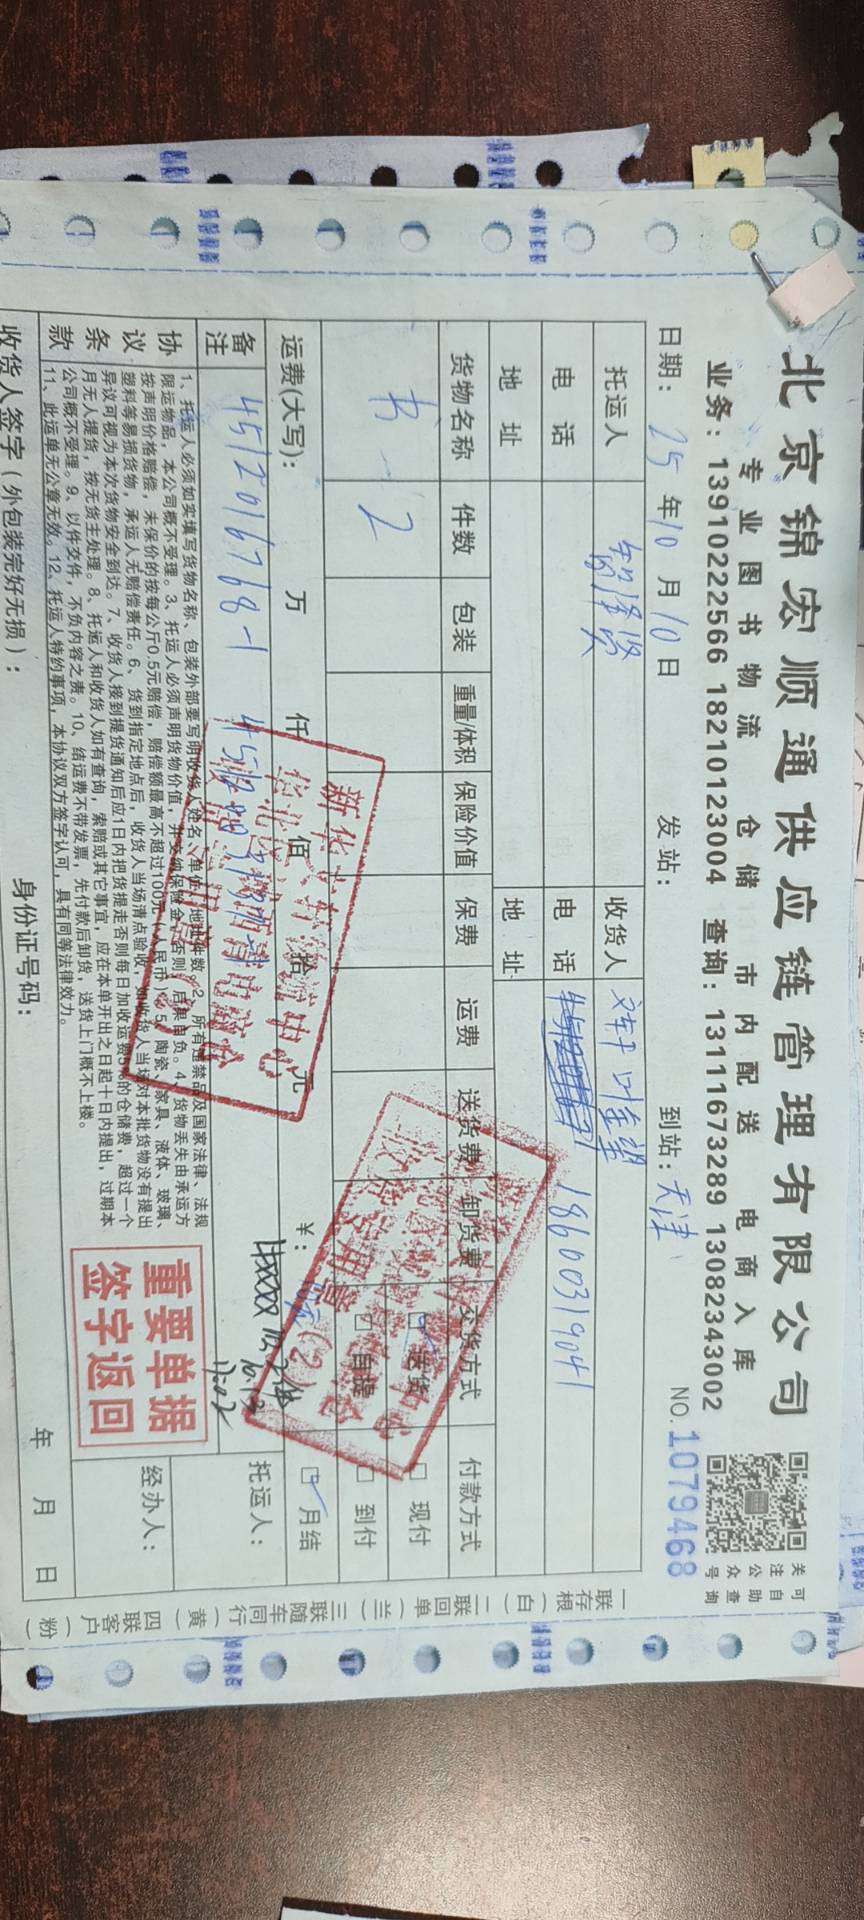 北京锦宏顺通供应链管理有限公司
专业图书物流 仓储 市内配送 电商入库
业务：13910222566 18210123004 查询：13111673289 13082343002
关注公众号
可自助查询
日期：25年10月10日 发站： 到站：天津 NO.1079468
托运人 智泽贤 收货人
电话 电话 18600319041
地址 地址
货物名称 件数 包装 重量/体积 保险价值 保费 运费 送货费 卸货费 交货方式 付款方式
书 2 送货 现付
自提 到付
运费(大写)： 万 仟 佰 拾 元 ¥： 月结
备注 4512016768-1
托运人：
经办人：
协议条款
1、托运人必须如实填写货物名称、包装外部要写明收货人姓名、单位、地址件数。2、所有违禁品及国家法律、法规
限运物品，本公司概不受理。3、托运人必须声明货物价值，并交纳保险金，否则，后果自负。4、货物丢失由承运方
按声明价格赔偿，未保价的按每公斤0.5元赔偿，赔偿额最高不超过100元(人民币)。5、陶瓷、家具、液体、玻璃、
塑料等易损货物，承运人无赔偿责任。6、货到指定地点后，收货人当场清点验收，如收货人当场对本批货物没有提出
异议可视为本次货物安全到达。7、收货人接到提货通知后应1日内把货提走否则每日加收运费的仓储费，超过一个
月无人提货，按无货主处理。8、托运人和收货人如有查询，索赔或其它事宜，应在本单开出之日起十日内提出，过期本
公司概不受理。9、以件交件，不负内容之责。10、结运费不带发票，先付款后卸货，送货上门概不上楼。
11、此运单无公章无效。12、托运人特约事项，本协议双方签字认可，具有同等法律效力。
重要单据
签字返回
收货人签字（外包装完好无损）： 身份证号码： 年 月 日
一联存根（白） 二联回单（兰） 三联随车同行（黄） 四联客户（粉）